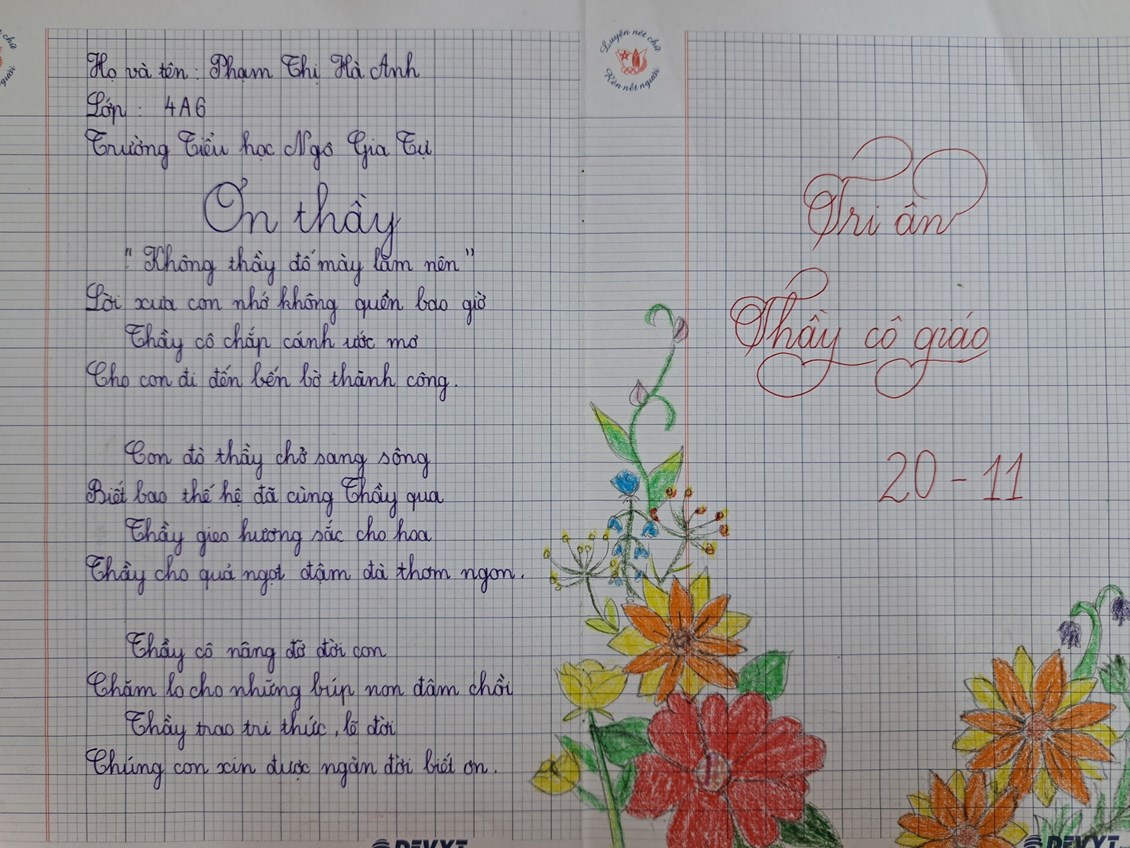 Họ và tên: Phạm Thị Hà Anh
Lớp: 4A6
Trường Tiểu học Ngô Gia Tự
Ơn thầy
"Không thầy đố mày làm nên"
Lời xưa con nhớ không quên bao giờ
Thầy cô chắp cánh ước mơ
Cho con đi đến bến bờ thành công.
Con đò thầy chở sang sông
Biết bao thế hệ đã cùng Thầy qua
Thầy gieo hương sắc cho hoa
Thầy cho quả ngọt đậm đà thơm ngon.
Thầy cô nâng đỡ đời con
Chăm lo cho những búp non đâm chồi
Thầy trao tri thức, lẽ đời
Chúng con xin được ngàn đời biết ơn.
Luyện nét chữ
Rèn nết người
Tri ân
Thầy cô giáo
20 - 11